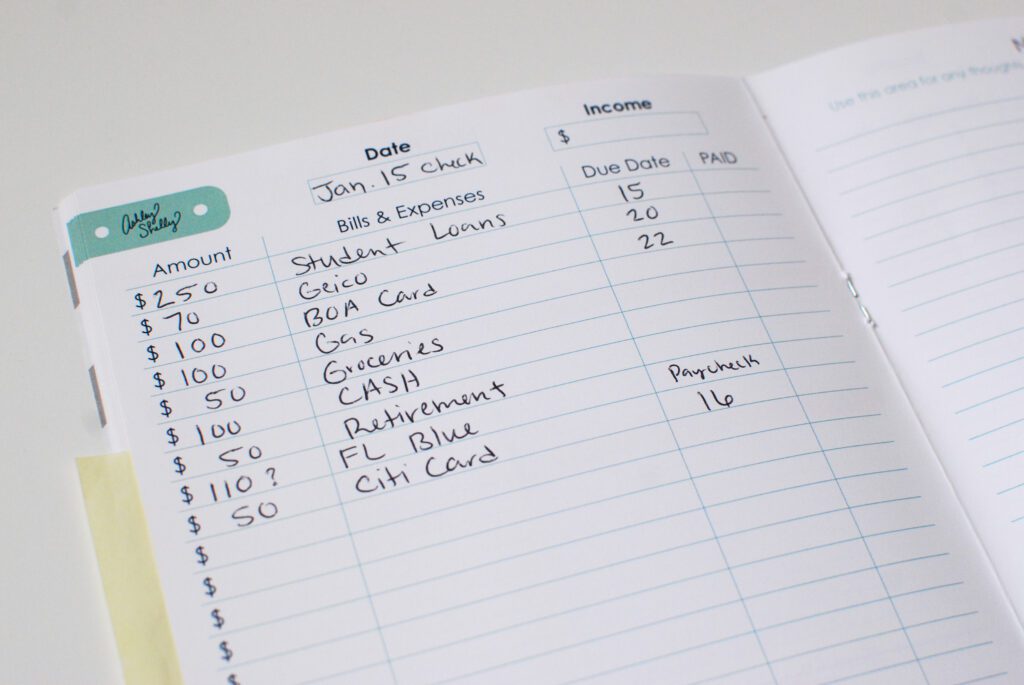 Ashley Shelly
Date
Jan. 15 Check
Income
$
Amount Bills & Expenses Due Date PAID
$250 Student Loans 15
$ 70 Geico 20
$ 100 BOA Card 22
$ 100 Gas
$ 50 Groceries
$ 100 CASH
$ 50 Retirement Paycheck
$ 110 ? FL Blue 16
$ 50 Citi Card
$
$
$
$
$
Use this area for any thoughts